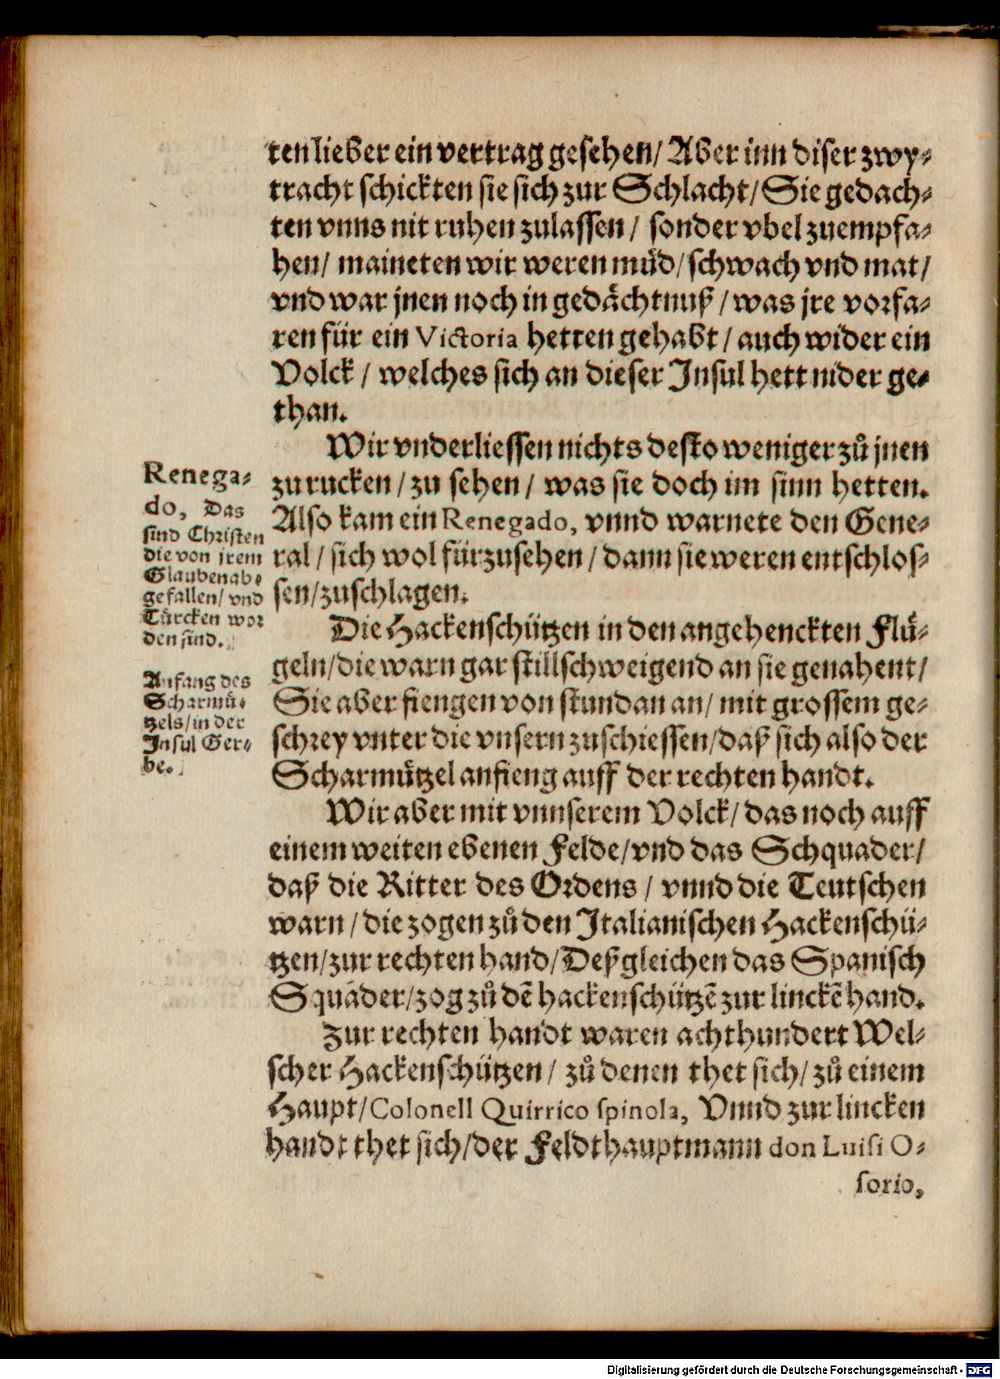 ten lieber ein vertrag gesehen/ Aber inn diser zwy-
tracht schickten sie sich zur Schlacht/ Sie gedach-
ten vnns nit ruhen zulassen/ sonder vbel zuempfa-
hen/ maineten wir weren müd/ schwach vnd mat/
vnd war jnen noch in gedächtnuß/ was jre vorfa-
ren für ein Victoria hetten gehabt/ auch wider ein
Volck/ welches sich an dieser Insul hett nider ge-
than.
Wir vnderliessen nichts desto weniger zů jnen
zu rucken/ zu sehen/ was sie doch im sinn hetten.
Also kam ein Renegado, vnnd warnete den Gene-
ral/ sich wol fürzusehen/ dann sie weren entschlos-
sen/ zuschlagen.
Renega-
do, Das
sind Christen
die von jrem
Glauben ab-
gefallen/ vnd
Türcken wor
den sind.
Die Hackenschützen in den angehenckten Flü-
geln/ die warn gar stillschweigend an sie genahent/
Sie aber fiengen von stundan an/ mit grossem ge-
schrey vnter die vnsern zuschiessen/ daß sich also der
Scharmützel anfieng auff der rechten handt.
Anfang des
Scharmü-
tzels/ in der
Insul Ger-
be.
Wir aber mit vnnserem Volck/ das noch auff
einem weiten ebenen Felde/ vnd das Schquader/
daß die Ritter des Ordens/ vnnd die Teutschen
warn/ die zogen zů den Italianischen Hackenschü-
tzen/ zur rechten hand/ Deßgleichen das Spanisch
Squader/ zog zů dẽ hackenschützẽ zur linckẽ hand.
Zur rechten handt waren achthundert Wel-
scher Hackenschützen/ zů denen thet sich/ zů einem
Haupt/ Colonell Quirrico spinola, Vnnd zur lincken
handt thet sich/ der Feldthauptmann don Luisi O-
sorio,
Digitalisierung gefördert durch die Deutsche Forschungsgemeinschaft - DFG